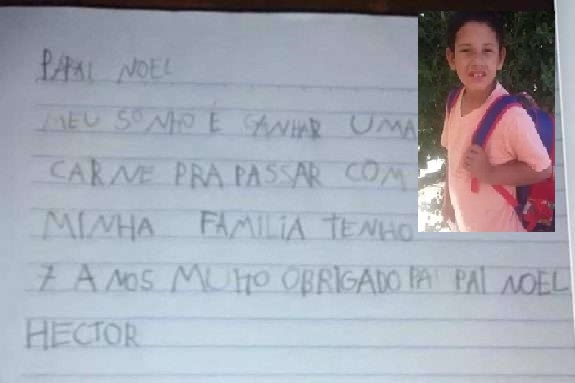 PAPAI NOEL
MEU SONHO É GANHAR UMA
CARNE PRA PASSAR COM
MINHA FAMILIA TENHO
7 ANOS MUITO OBRIGADO PAI PAI NOEL
HECTOR